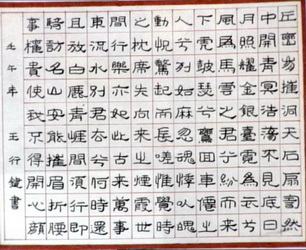 丘巒崩摧洞天石扉訇然
中開青冥浩蕩不見底日
月照耀金銀臺霓為衣兮
風為馬雲之君兮紛而來
下虎鼓瑟兮鸞回車仙之
人兮列如麻忽魂悸以魄
動怳驚起而長嗟惟覺時
之枕席失向來之煙霞世
間行樂亦如此古來萬事
東流水別君去兮何時還
且放白鹿青崖間須行即
騎訪名山安能摧眉折腰
事權貴使我不得開心顏
壬午年 王行健書